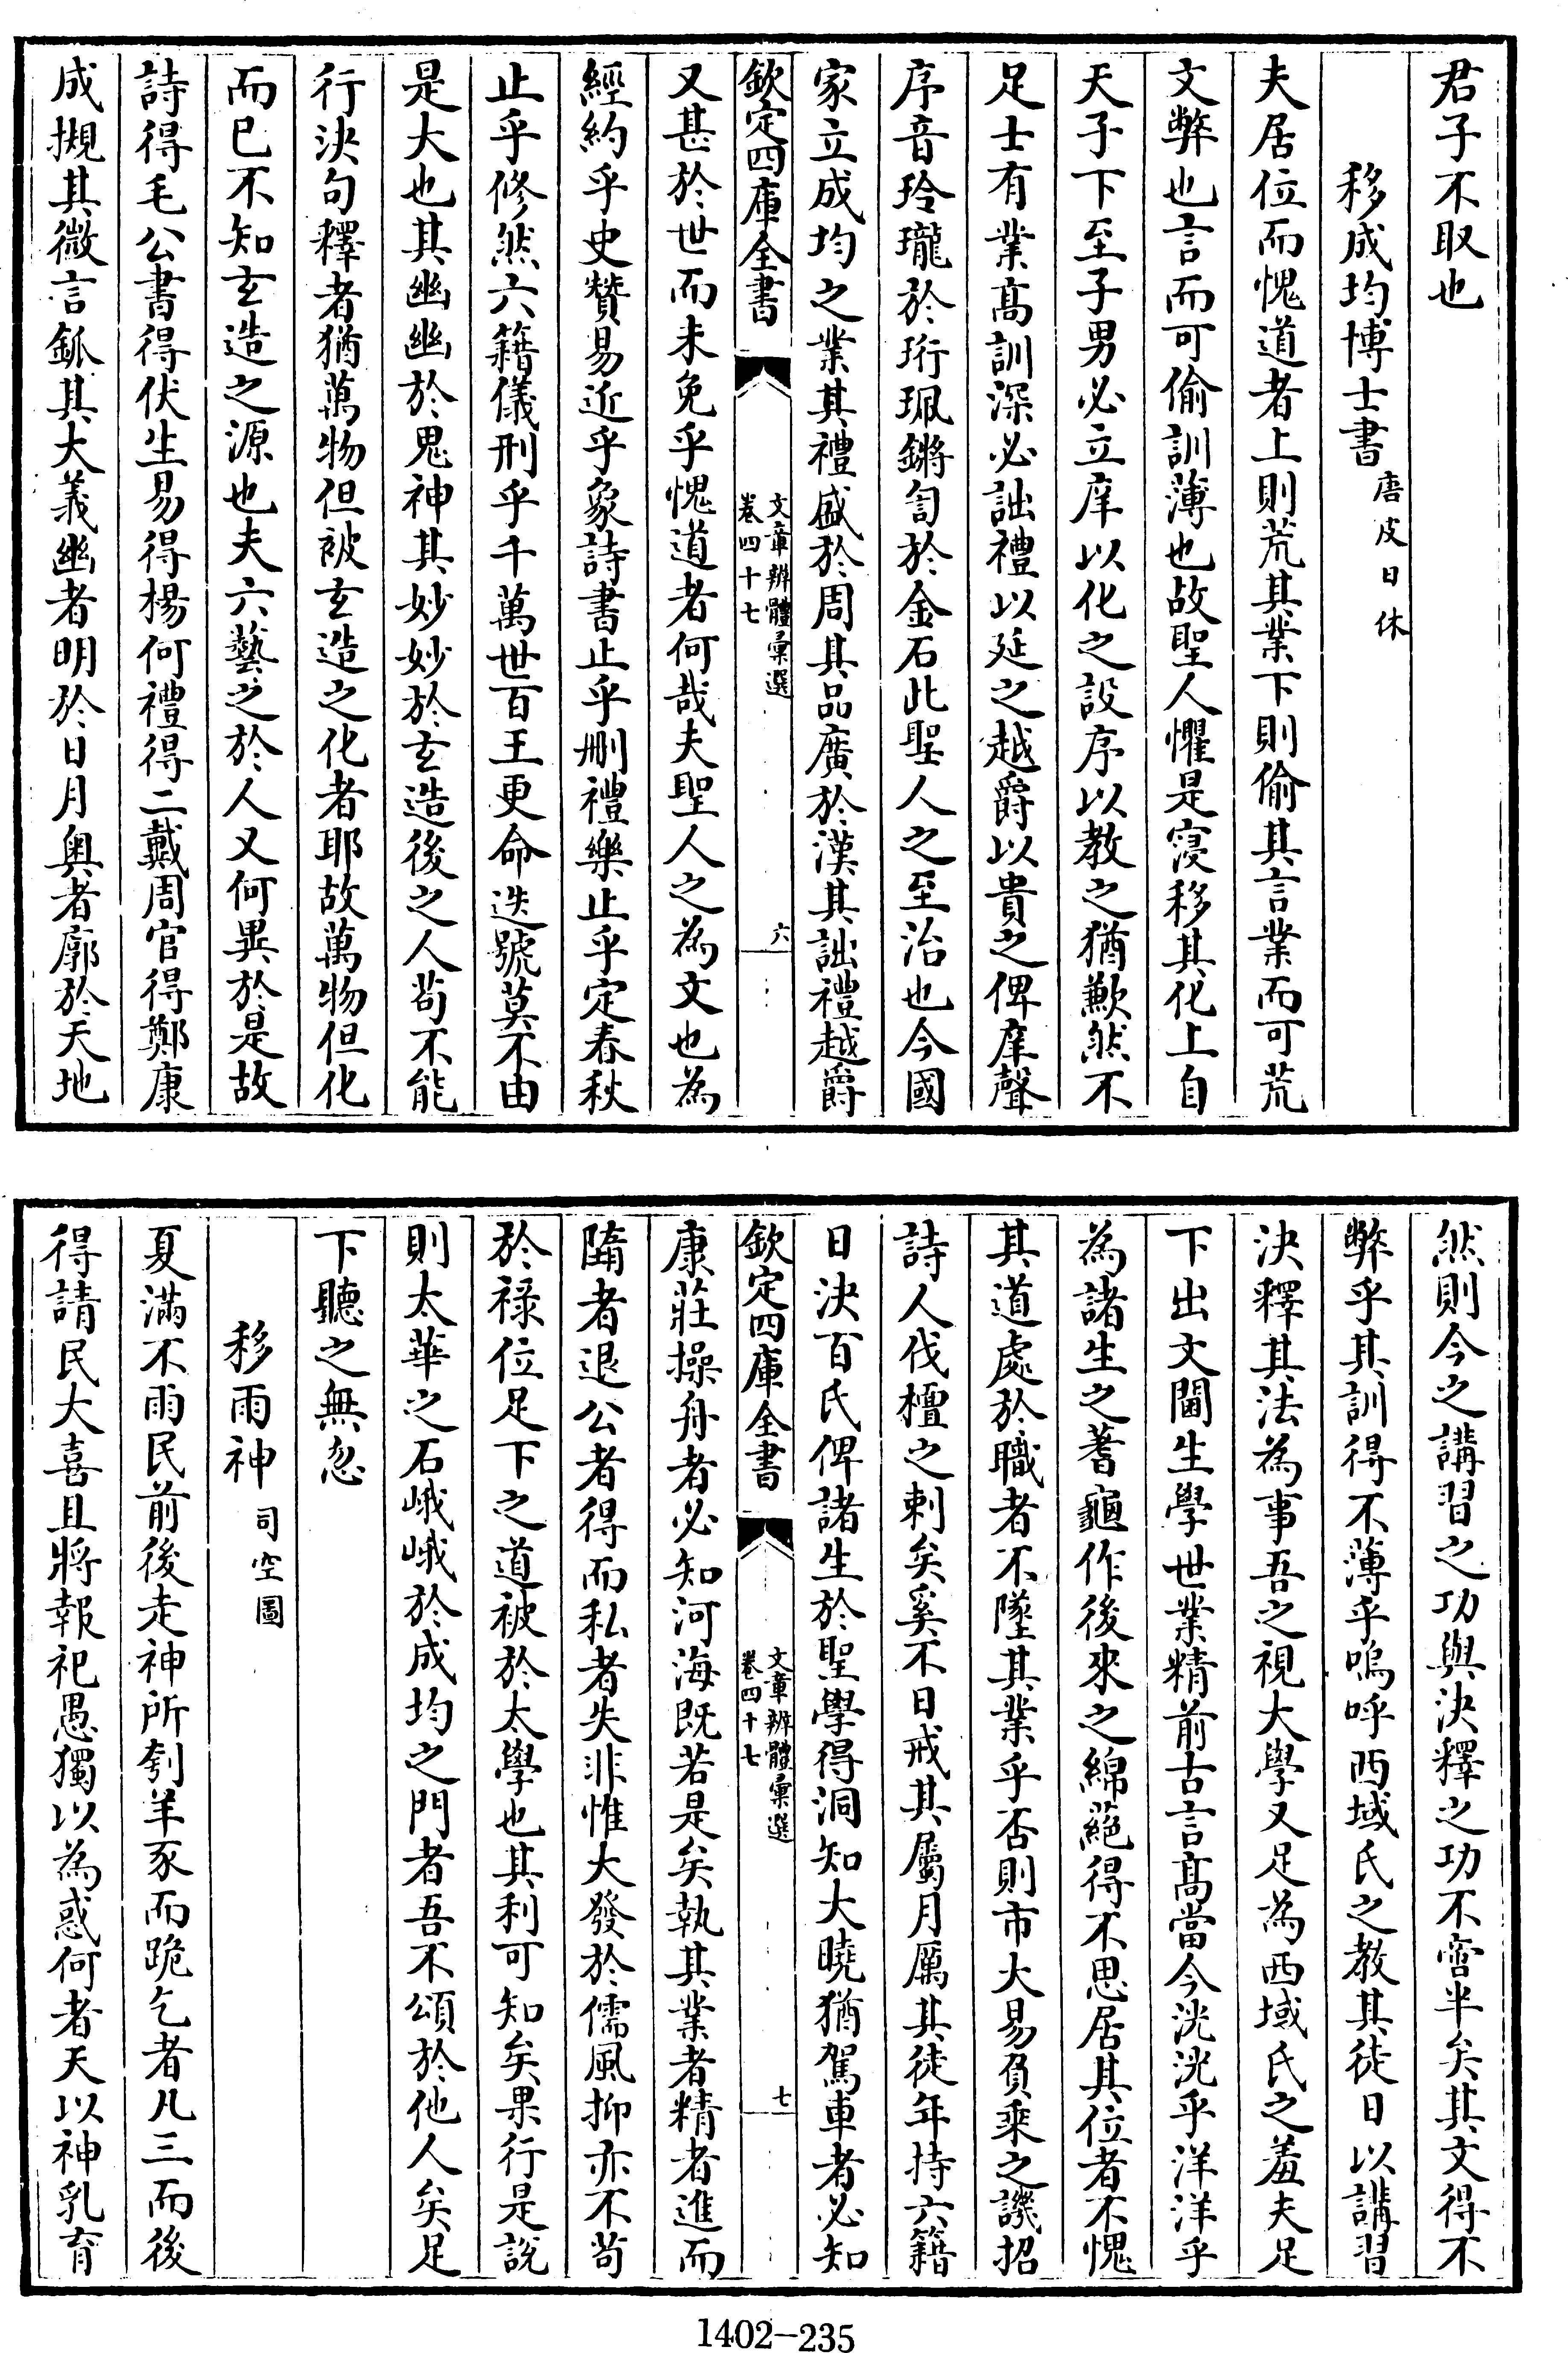 君子不取也
移成均博士書 唐皮日休
夫居位而愧道者上則荒其業下則偷其言業而可荒
文弊也言而可偷訓薄也故聖人懼是寖移其化上自
天子下至子男必立庠以化之設序以教之猶歉然不
足士有業高訓深必詘禮以延之越爵以貴之俾庠聲
序音玲瓏於珩珮鏘訇於金石此聖人之至治也今國
家立成均之業其禮盛於周其品廣於漢其詘禮越爵
欽定四庫全書 文章辨體彙選 卷四十七 六
又甚於世而未免乎愧道者何哉夫聖人之為文也為
經約乎史贊易近乎象詩書止乎刪禮樂止乎定春秋
止乎修然六籍儀刑乎千萬世百王更命迭號莫不由
是大也其幽幽於鬼神其妙妙於玄造後之人苟不能
行決句釋者猶萬物但被玄造之化者耶故萬物但化
而已不知玄造之源也夫六藝之於人又何異於是故
詩得毛公書得伏生易得楊何禮得二戴周官得鄭康
成摫其微言釽其大義幽者明於日月奧者廓於天地
然則今之講習之功與決釋之功不啻半矣其文得不
弊乎其訓得不薄乎嗚呼西域氏之教其徒日以講習
決釋其法為事吾之視大學又足為西域氏之羞夫足
下出文閫生學世業精前古言高當今洸洸乎洋洋乎
為諸生之蓍龜作後來之綿蕝得不思居其位者不愧
其道處於職者不墜其業乎否則市大易負乘之譏招
詩人伐檀之刺矣奚不日戒其屬月厲其徒年持六籍
日決百氏俾諸生於聖學得洞知大曉猶駕車者必知
欽定四庫全書 文章辨體彙選 卷四十七 七
康莊操舟者必知河海既若是矣執其業者精者進而
隳者退公者得而私者失非惟大發於儒風抑亦不苟
於祿位足下之道被於太學也其利可知矣果行是說
則太華之石峨峨於成均之門者吾不頌於他人矣足
下聽之無忽
移雨神 司空圖
夏滿不雨民前後走神所刳羊豕而跪乞者凡三而後
得請民大喜且將報祀愚獨以為惑何者天以神乳育
1402-235